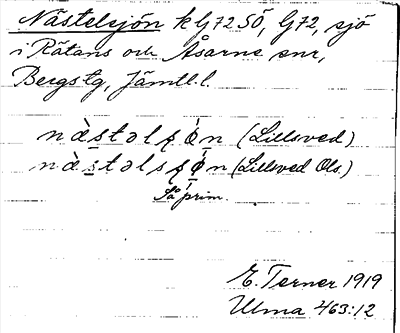 Nästelsjön k G72 SÖ, G72, sjö
i Rätans och Åsarne snr,
Bergs tg, Jämtl. l.
nàstəlsʂǿn (Lillsved)
nàstəlsʂǿn (Lillsved Ols.)
Så prim.
E. Terner 1919
Ulma 463:12